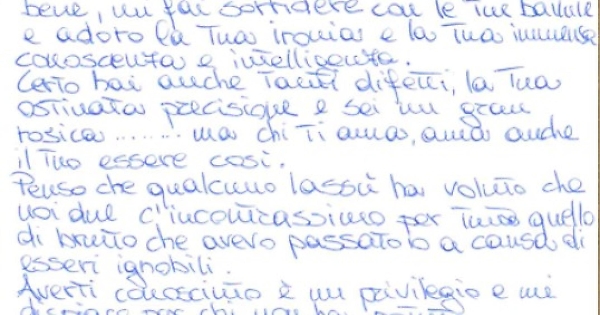 bene, mi fai sorridere con le tue battute
e adoro la Tua ironia e la Tua immensa
conoscenza e intelligenza.
Certo hai anche Tanti difetti, la Tua
ostinata precisione e sei un gran
rosica........ ma chi Ti ama, ama anche
il Tuo essere così.
Penso che qualcuno lassù ha voluto che
noi due c'incontrassimo per Tutto quello
di brutto che avevo passato a causa di
esseri ignobili.
Averti conosciuto è un privilegio e mi
dispiace per chi non ha